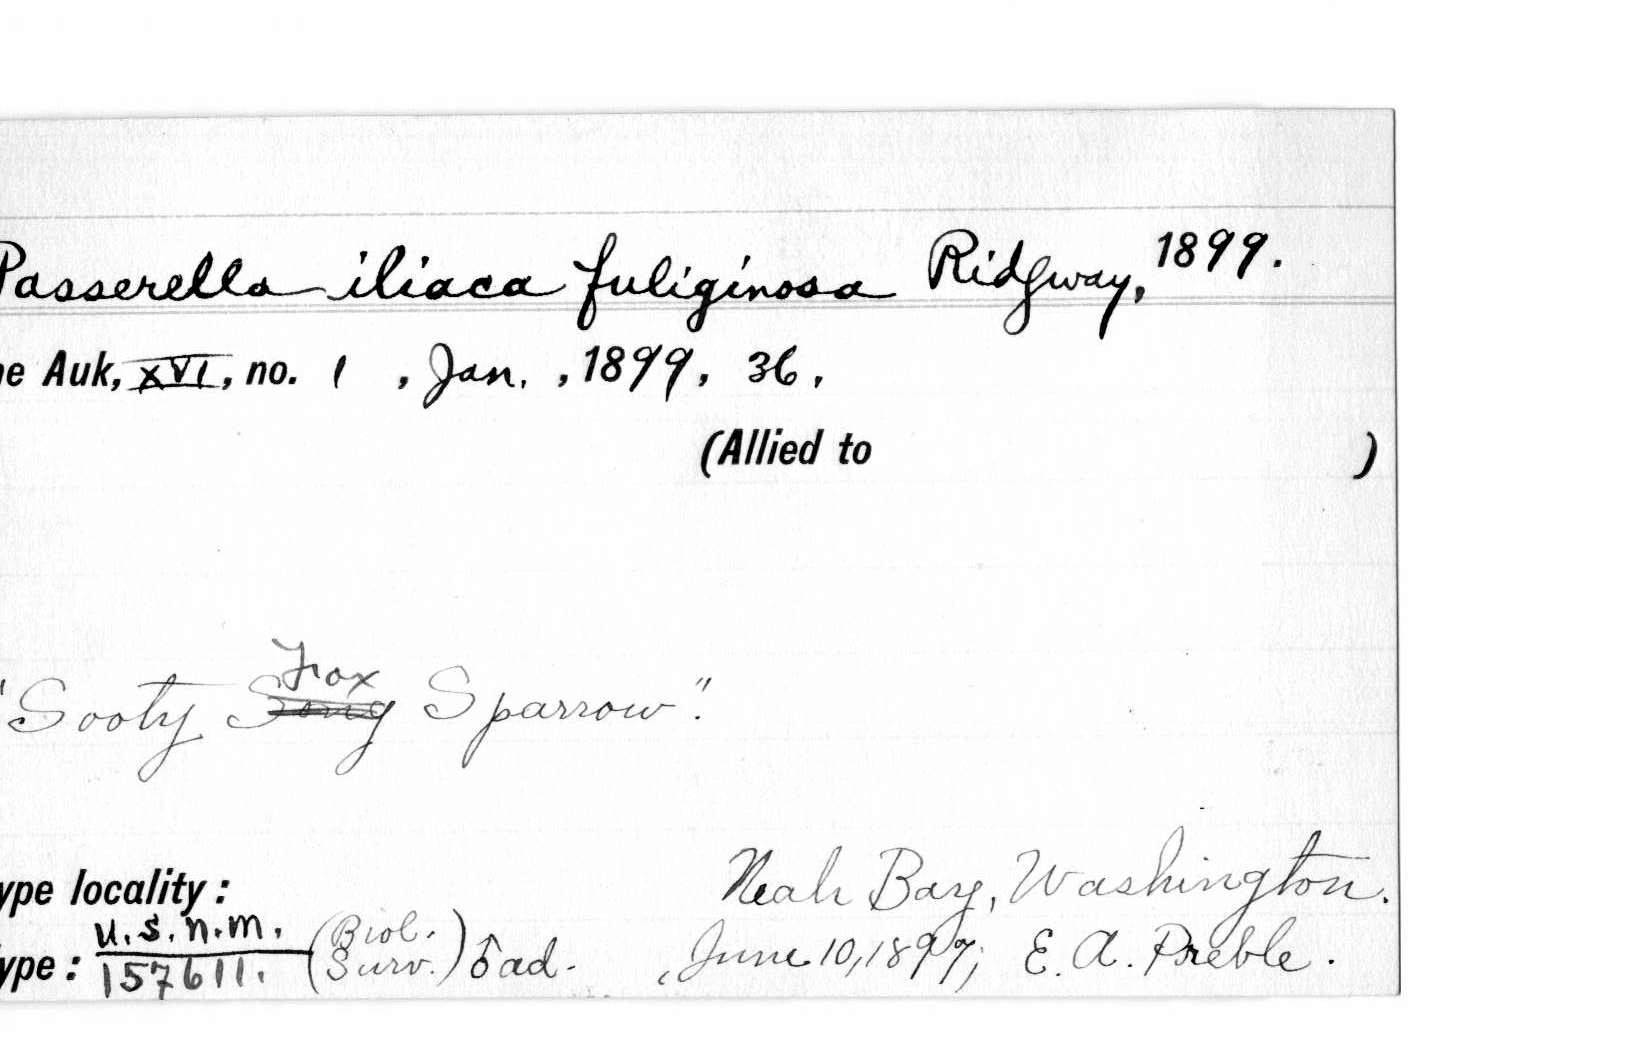 Passerella iliaca fuliginosa Ridgway, 1899.
he Auk, XVI, no. 1 , Jan. , 1899, 36,
(Allied to )
Fox
"Sooty Song Sparrow".
ype locality: Neah Bay, Washington.
ype: U.S.N.M. 157611. (Biol. Surv.) ♂ ad. , June 10, 1897; E. A. Preble.